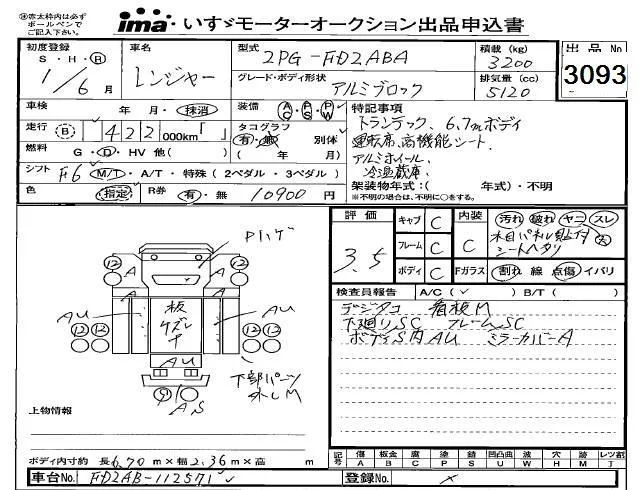 ※太枠内は必ず
ボールペンで
ご記入下さい。
ima いすゞモーターオークション出品申込書
初度登録
S・H・R
1/6月
車名
レンジャー
型式
2PG-FD2ABA
積載(kg)
3200
グレード・ボディ形状
アルミブロック
排気量(cc)
5120
出品No
3093
車検 年・月・抹消
装備 AC・PS・PW
走行 (B) 422 000km「 」
タコグラフ
有・無 別体
( 年 月)
燃料 G・D・HV 他( )
シフト F6 M/T・A/T・特殊(2ペダル・3ペダル)
色 (指定) R券 有・無 10900円
特記事項
トランテック、6.7mボディ
運転席高機能シート、
アルミホイール、
冷温蔵庫、
架装物年式:( 年式)・不明
※不明の場合は、不明に○をする。
評価
3.5
キャブ C
フレーム C
ボディ C
内装 C
Fガラス
汚れ 破れ ヤニ スレ
木目パネル貼付 大
シートヘタリ
割れ 線 点傷 イバリ
検査員報告 A/C( ✓ ) B/T( )
デジタコ 看板M
下廻りSC フレームSC
ボディS内AU ミラーカバーA
Pハゲ
12 12
A A
A A
AU 板 AU
12 12 12 12
AU
下部パーツ
外しM
S
AS
上物情報
ボディ内寸約 長6.70m×幅2.36m×高 m
記号
傷 板金 腐 塗 錆 凹凸曲 波 穴 跡 レツ割
A B C P S U W H M J
車台No. FD2AB-112571
登録No. ×